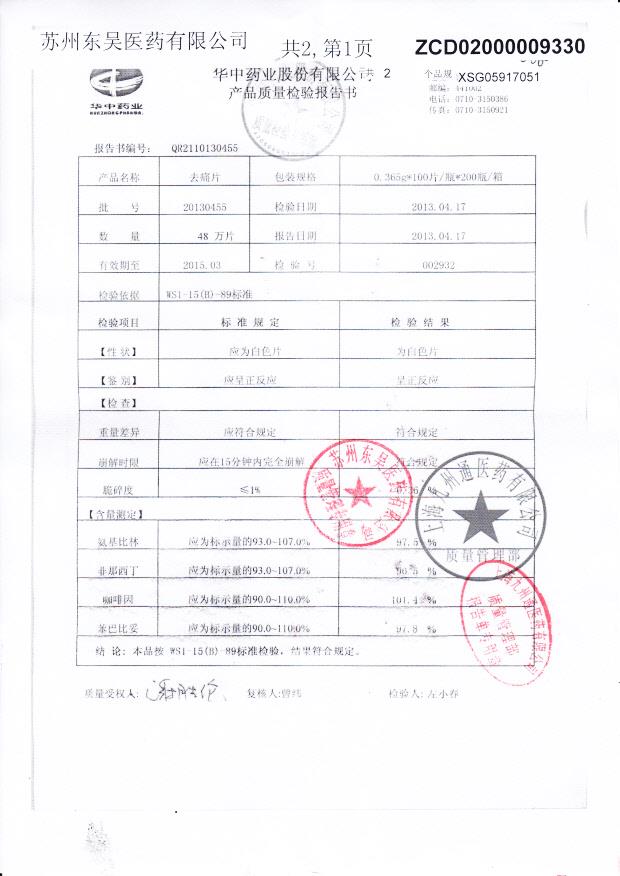 苏州东吴医药有限公司
共2,第1页
ZCD02000009330
华中药业股份有限公司共 2
个品规
XSG05917051
产品质量检验报告书
邮编: 441002
电话: 0710-3150386
传真: 0710-3150921
华中药业
HUAZHONG PHARMA.
报告书编号: QR2110130455
产品名称 去痛片 包装规格 0.365g*100片/瓶*200瓶/箱
批 号 20130455 检验日期 2013.04.17
数 量 48 万片 报告日期 2013.04.17
有效期至 2015.03 检 验 号 002932
检验依据 WS1-15(B)-89标准
检验项目 标 准 规 定 检 验 结 果
【性 状】 应为白色片 为白色片
【鉴 别】 应呈正反应 呈正反应
【检 查】
重量差异 应符合规定 符合规定
崩解时限 应在15分钟内完全崩解 符合规定
脆碎度 ≤1%
【含量测定】
氨基比林 应为标示量的93.0~107.0% 97.5 %
非那西丁 应为标示量的93.0~107.0% %
咖啡因 应为标示量的90.0~110.0% 101.4 %
苯巴比妥 应为标示量的90.0~110.0% 97.8 %
结 论: 本品按 WS1-15(B)-89标准检验, 结果符合规定。
质量受权人: 复核人:曾纬 检验人: 左小春
苏州东吴医药有限公司
上海九州通医药有限公司
质量管理部
上海九州通医药有限公司
质量管理部